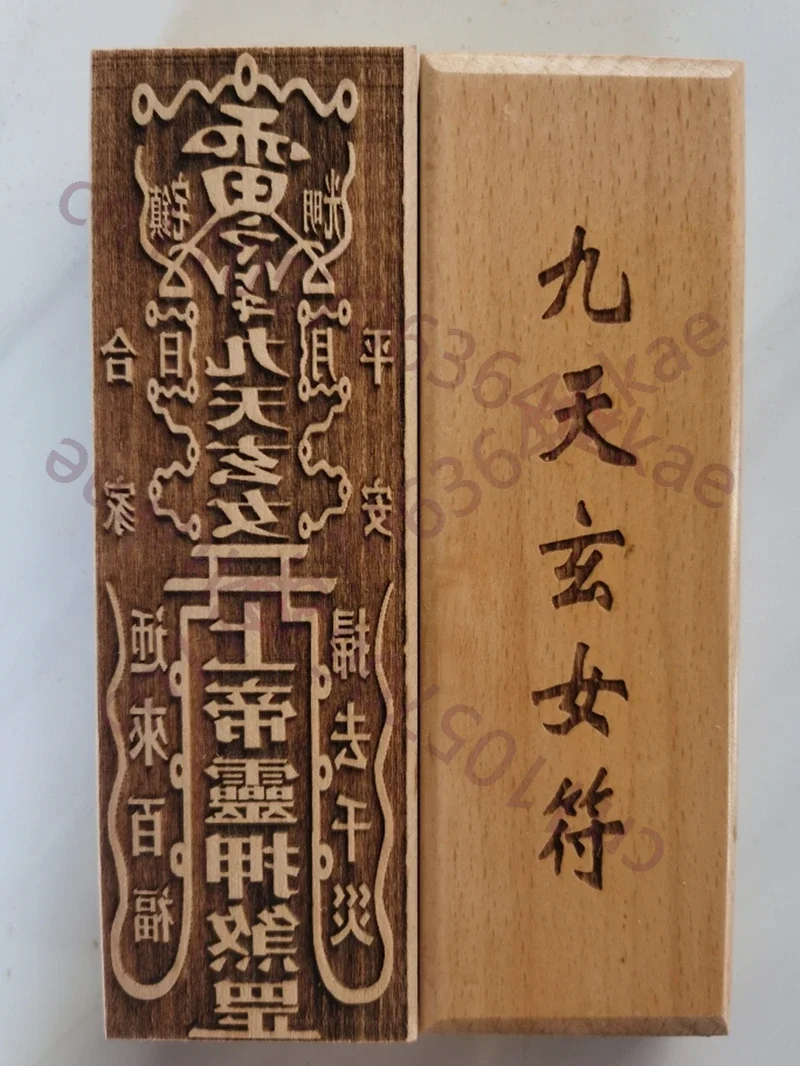 雷
光明
鎮宅
九天玄女
月
日
平安
合家
上帝靈押煞罡
掃去千災
迎來百福
九天玄女符